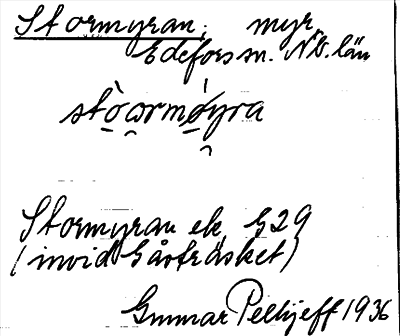 Stormyran, myr,
Edefors sn. Nb. län
stò̱o̯rmó̱y̯ra
Stormyran ek. G29
(invid Gåsträsket)
Gunnar Pellijeff 1936